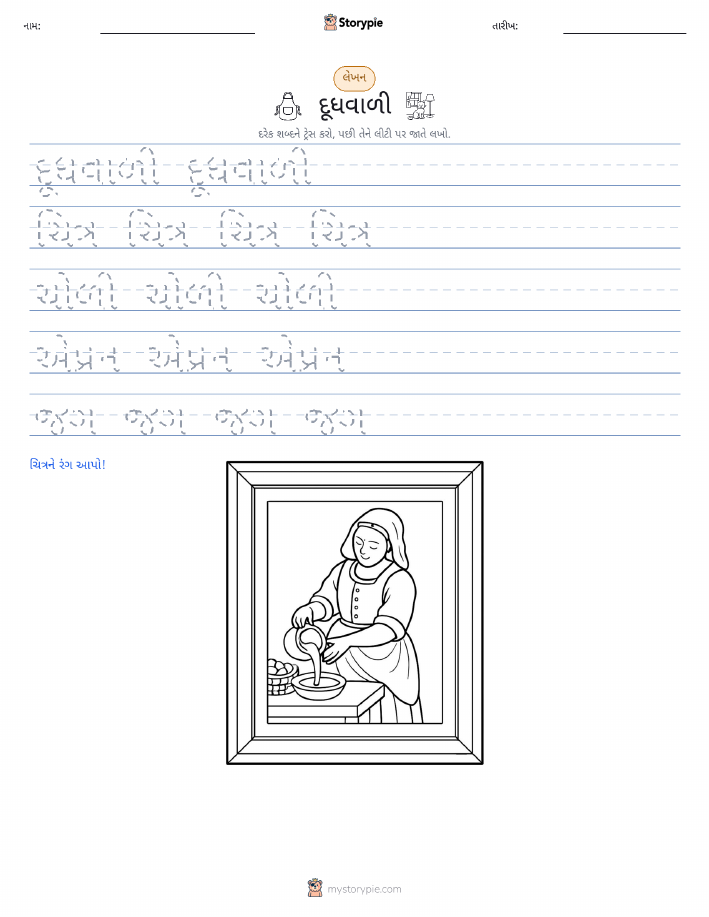 નામ:
Storypie
તારીખ:
લેખન
દૂધવાળી
દરેક શબ્દને ટ્રેસ કરો, પછી તેને લીટી પર જાતે લખો.
દૂધવાળી દૂધવાળી
ચિત્ર ચિત્ર ચિત્ર ચિત્ર
ચોળી ચોળી ચોળી
એપ્રન એપ્રન એપ્રન
જગ જગ જગ જગ
ચિત્રને રંગ આપો!
mystorypie.com